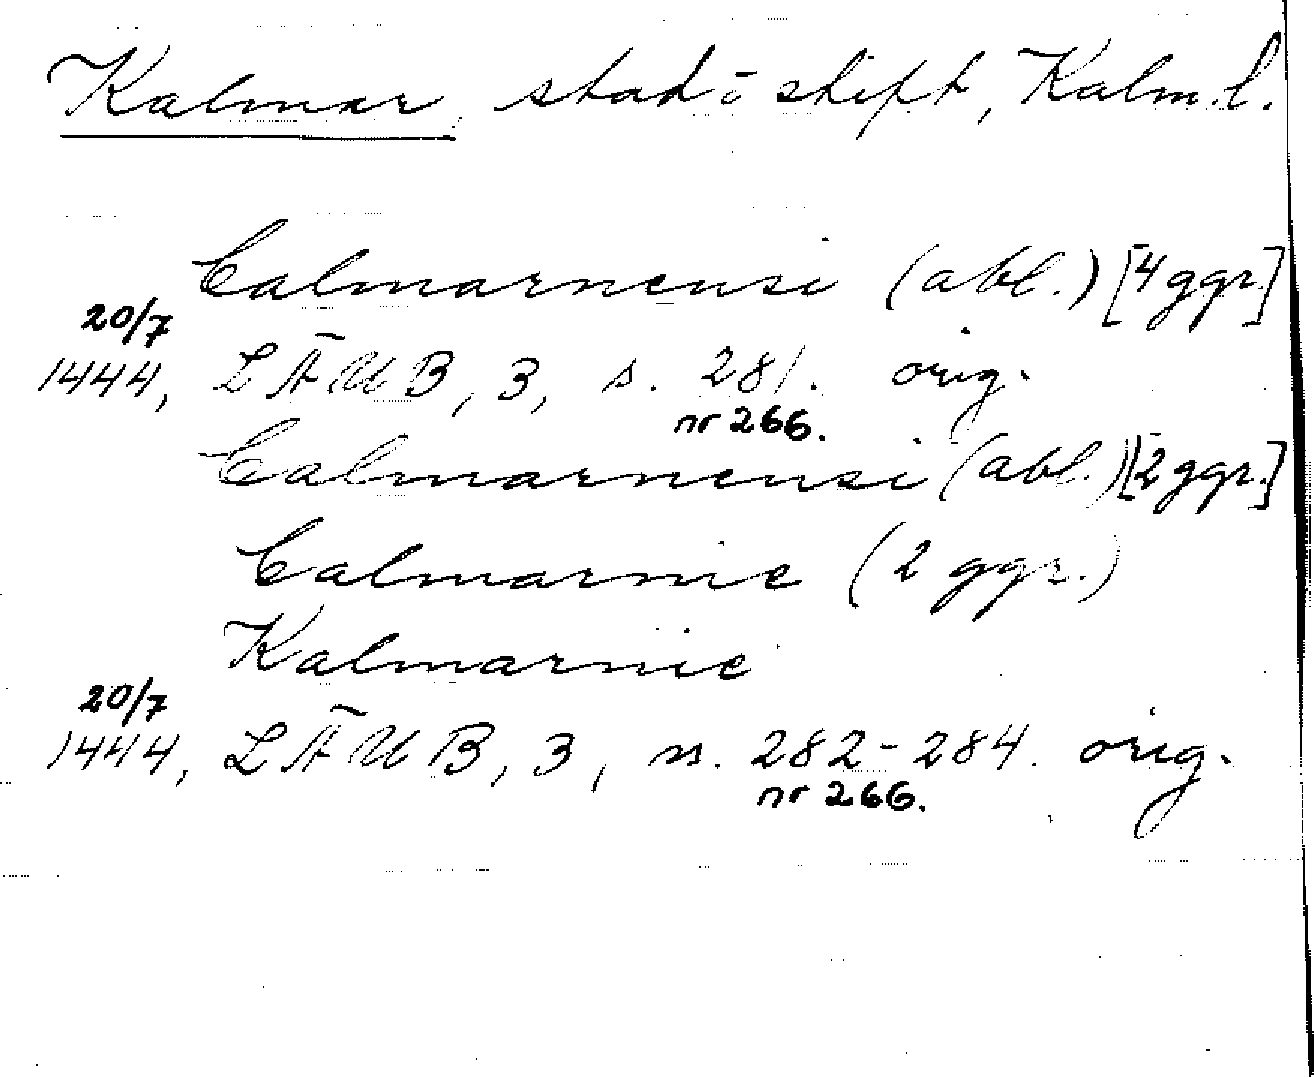 Kalmar, stad o stift, Kalm. l.
Calmarnensi (abl.) [4 ggr.]
20/7
1444, LÄUB, 3, s. 281. orig.
nr 266.
Calmarnensi (abl.) [2 ggr.]
Calmarnie (2 ggr.)
Kalmarnie
20/7
1444, LÄUB, 3, ss. 282-284. orig.
nr 266.